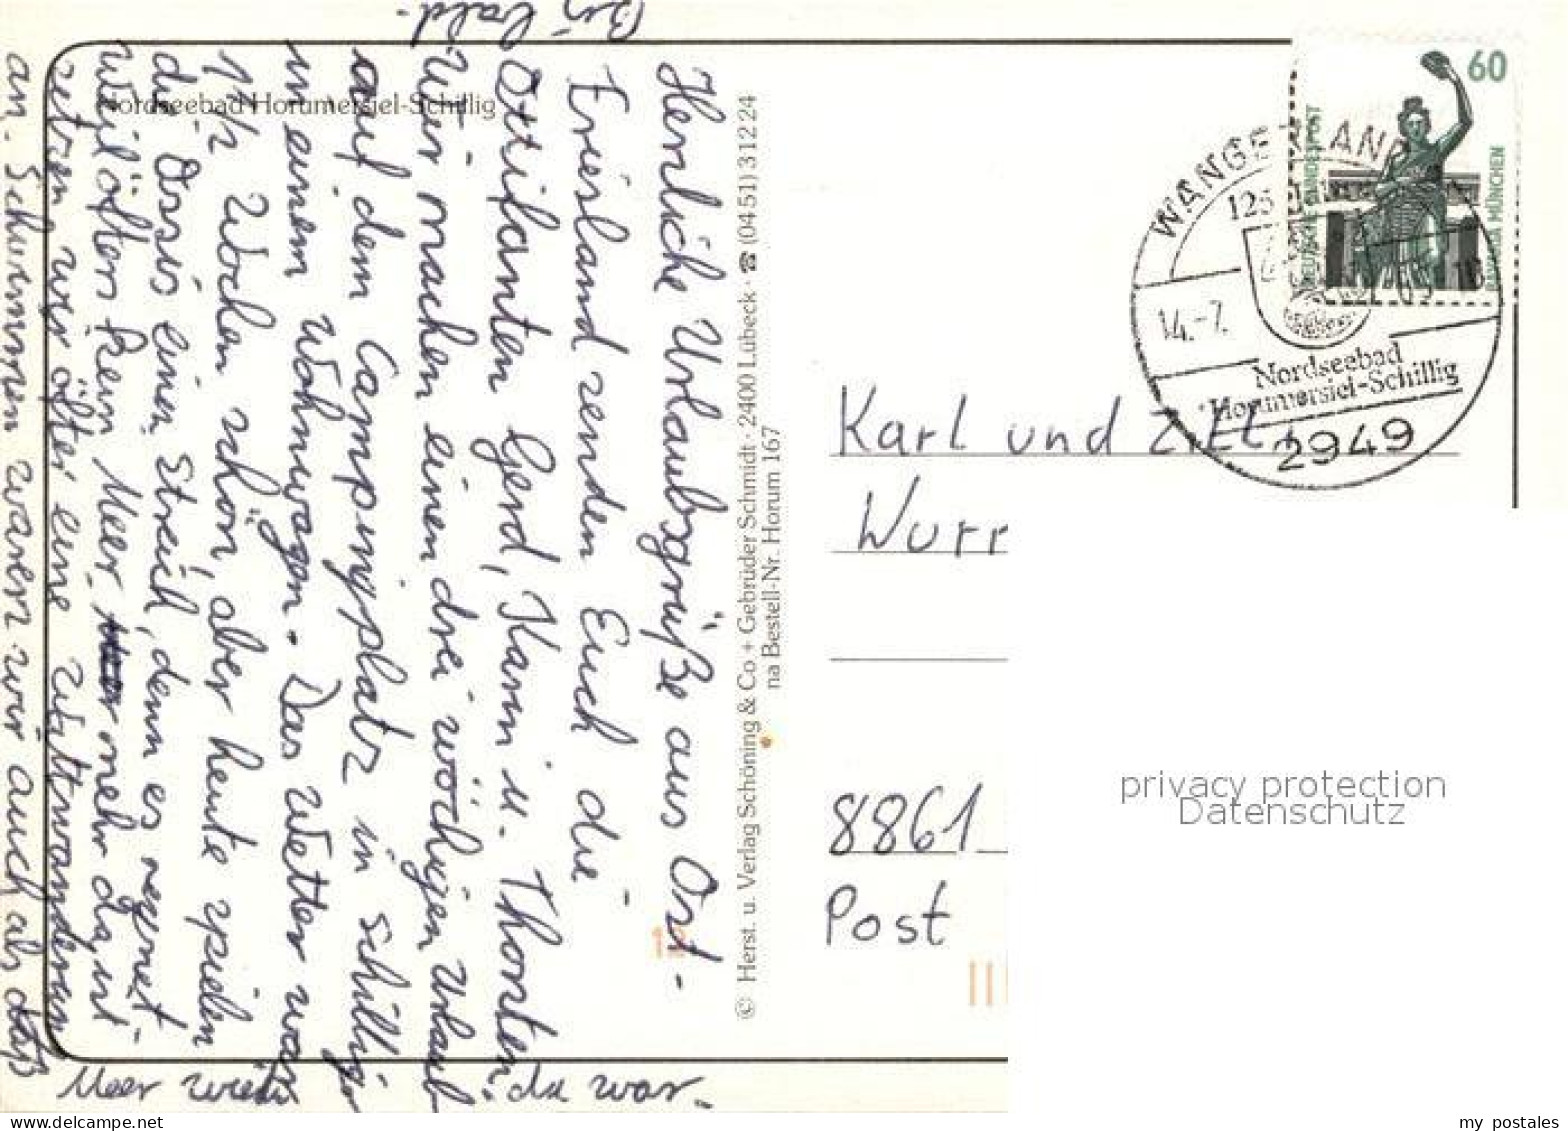 Nordseebad Horumersiel-Schillig
Herzliche Urlaubsgrüße aus Ost-
Friesland senden Euch die
Ottifanten Gerd, Karin u. Thorsten.
Wir machen einen drei wöchigen Urlaub
auf dem Campingplatz in Schillig
in einem Wohnwagen. Das Wetter war
1 1/2 Wochen schön, aber heute spielen
die Ossis einen Streich, denn es regnet.
Weil öfters kein Meer mehr da ist
setzen wir öfter eine Wattwanderung
an. Schwimmen waren wir auch als das
Meer wieder da war.
Bis bald.
© Herst. u. Verlag Schöning & Co + Gebrüder Schmidt · 2400 Lübeck · ☎ (0451) 31224
na Bestell-Nr. Horum 167
60
DEUTSCHE BUNDESPOST
BAVARIA MÜNCHEN
WANGERLAND
14.-7.
Nordseebad
Horumersiel-Schillig
2949
Karl und
Wurr
8861
Post
privacy protection
Datenschutz
www.delcampe.net
my postales